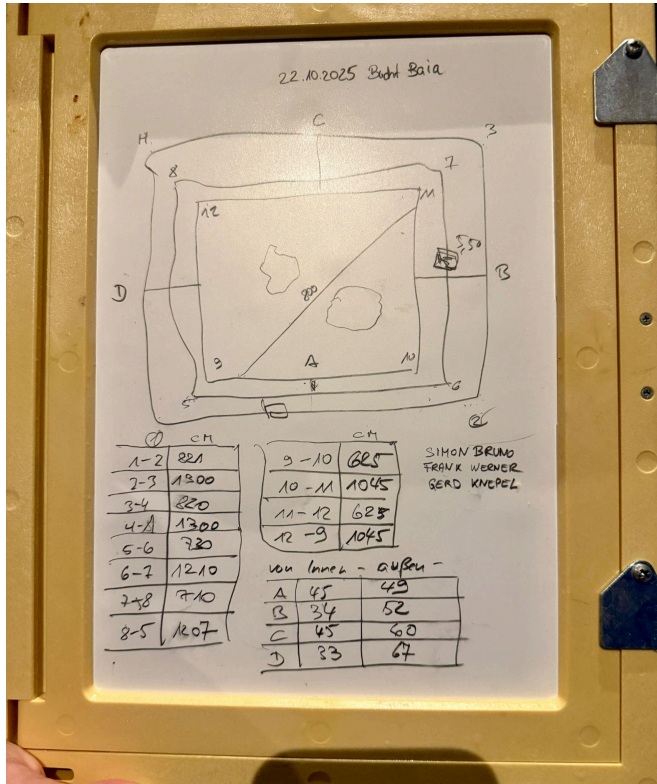 22.10.2025 Bucht Baia
C
H
3
8
7
12
11
5,50
D
800
B
9
A
10
5
6
CM
1-2 821
2-3 1300
3-4 820
4-1 1300
5-6 730
6-7 1210
7-8 710
8-5 1207
CM
9-10 625
10-11 1045
11-12 625
12-9 1045
SIMON BRUNO
FRANK WERNER
GERD KNEPEL
von Innen - außen -
A 45 49
B 34 52
C 45 60
D 33 67